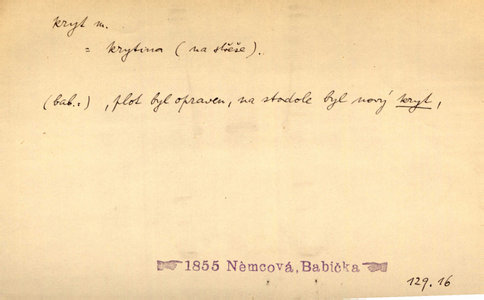 kryt m.
= krytina (na střeše).
(bab.:) , plot byl opraven, na stodole byl nový kryt,
1855 Němcová, Babička
129.16